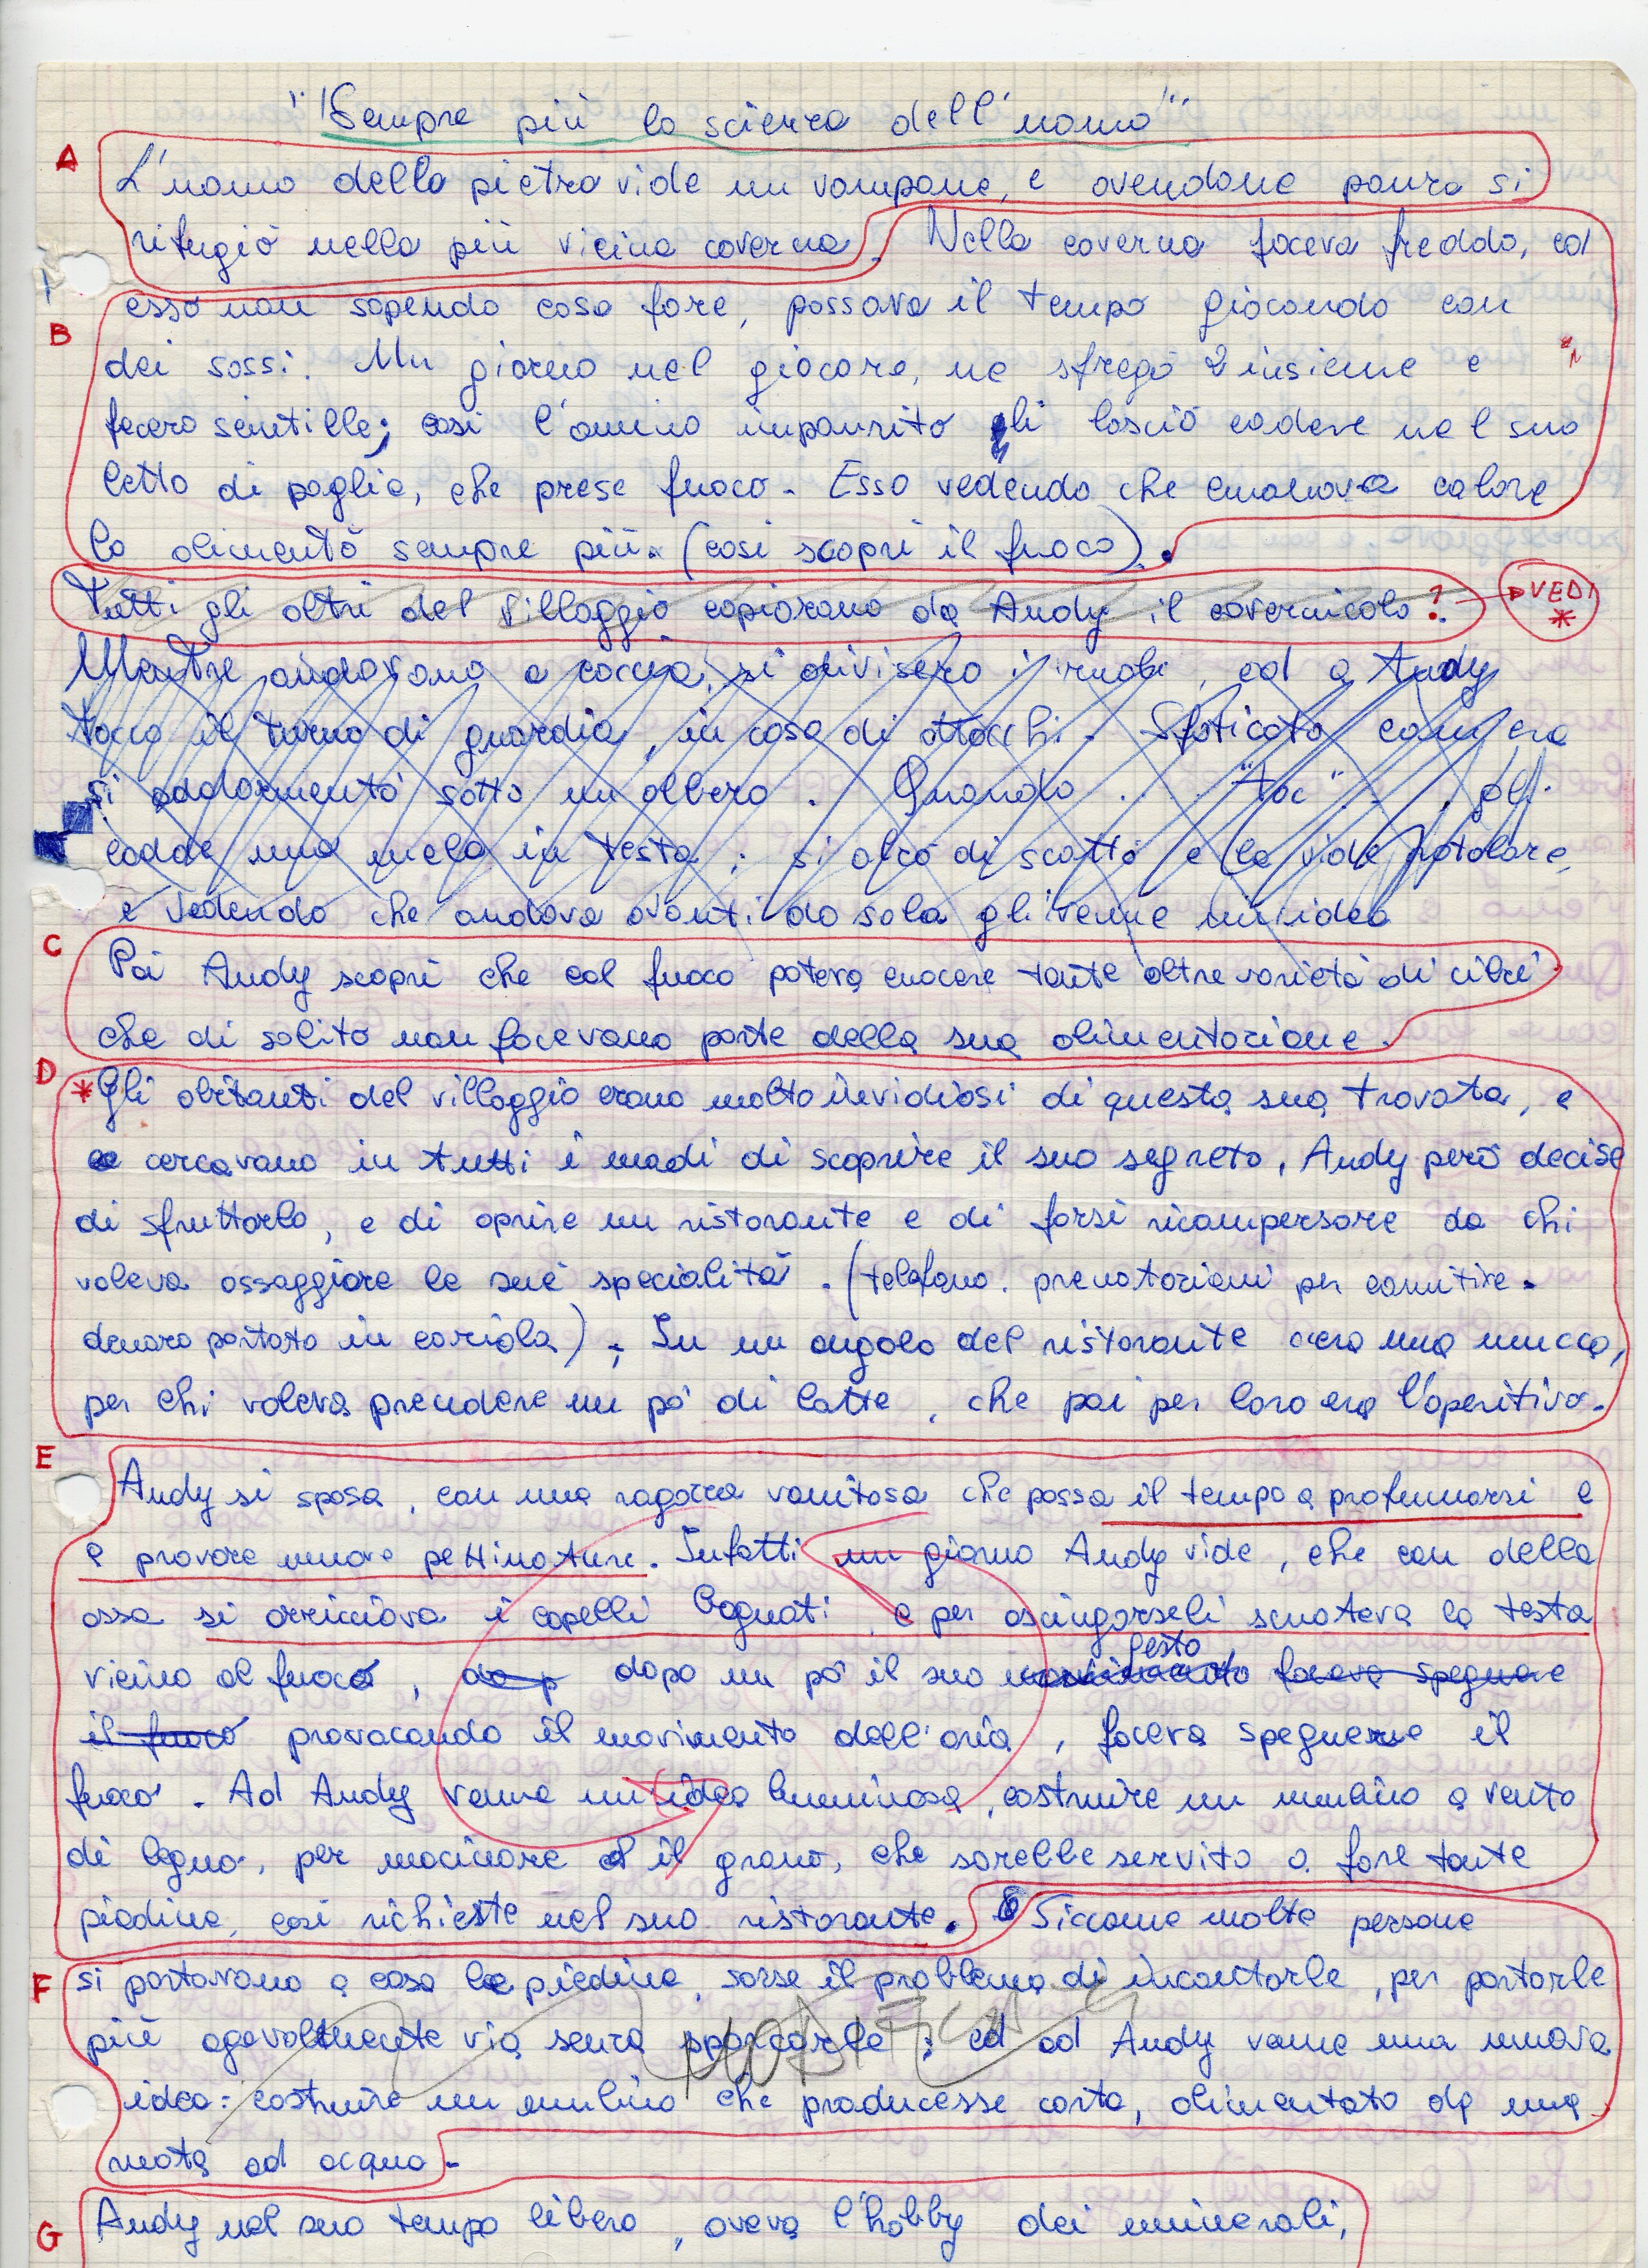 "Sempre più la scienza dell'uomo"
A
L'uomo della pietra vide un vampone, e avendone paura si
rifugiò nella più vicina caverna. Nella caverna faceva freddo, ed
B
esso non sapendo cosa fare, passava il tempo giocando con
dei sassi. Un giorno nel giocare, ne sfregò 2 insieme e
fecero scintille; così l'omino impaurito gli lasciò cadere nel suo
letto di paglia, che prese fuoco. Esso vedendo che emanava calore
lo alimentò sempre più. (così scoprì il fuoco).
Tutti gli altri del villaggio copiarono da Andy il cavernicolo? VEDI *
Mentre andavano a caccia, si divisero i ruoli, ed a Andy
toccò il turno di guardia, in caso di attacchi. Sfaticato com'era
si addormentò sotto un albero. Quando... "Toc"... gli
cadde una mela in testa; si alzò di scatto e la vide rotolare,
e vedendo che andava avanti da sola gli venne un'idea
C
Poi Andy scoprì che col fuoco poteva cuocere tante altre varietà di cibi
che di solito non facevano parte della sua alimentazione.
D
*Gli abitanti del villaggio erano molto invidiosi di questa sua trovata, e
cercavano in tutti i modi di scoprire il suo segreto, Andy però decise
di sfruttarlo, e di aprire un ristorante e di farsi ricompensare da chi
voleva assaggiare le sue specialità. (telefono. prenotazioni per comitive.
denaro portato in cariola). In un angolo del ristorante c'era una mucca,
per chi voleva prendere un pò di latte, che poi per loro era l'aperitivo.
E
Andy si sposa, con una ragazza vanitosa che passa il tempo a profumarsi e
a provare nuove pettinature. Infatti un giorno Andy vide, che con della
ossa si arricciava i capelli bagnati, e per asciugarseli scuoteva la testa
vicino al fuoco, da p dopo un pò il suo movimento gesto faceva spegnere
il fuoco provocando il movimento dell'aria, faceva spegnere il
fuoco. Ad Andy venne un'idea luminosa, costruire un mulino a vento
di legno, per macinare il grano, che sarebbe servito a fare tante
piadine, così richieste nel suo ristorante. Siccome molte persone
F
si portavano a casa le piadine, sorse il problema di incartarle, per portarle
più agevolmente via senza sporcarle; ed ad Andy venne una nuova
MODIFICA
idea: costruire un mulino che producesse carta, alimentato da una
ruota ad acqua.
G
Andy nel suo tempo libero, aveva l'hobby dei minerali,